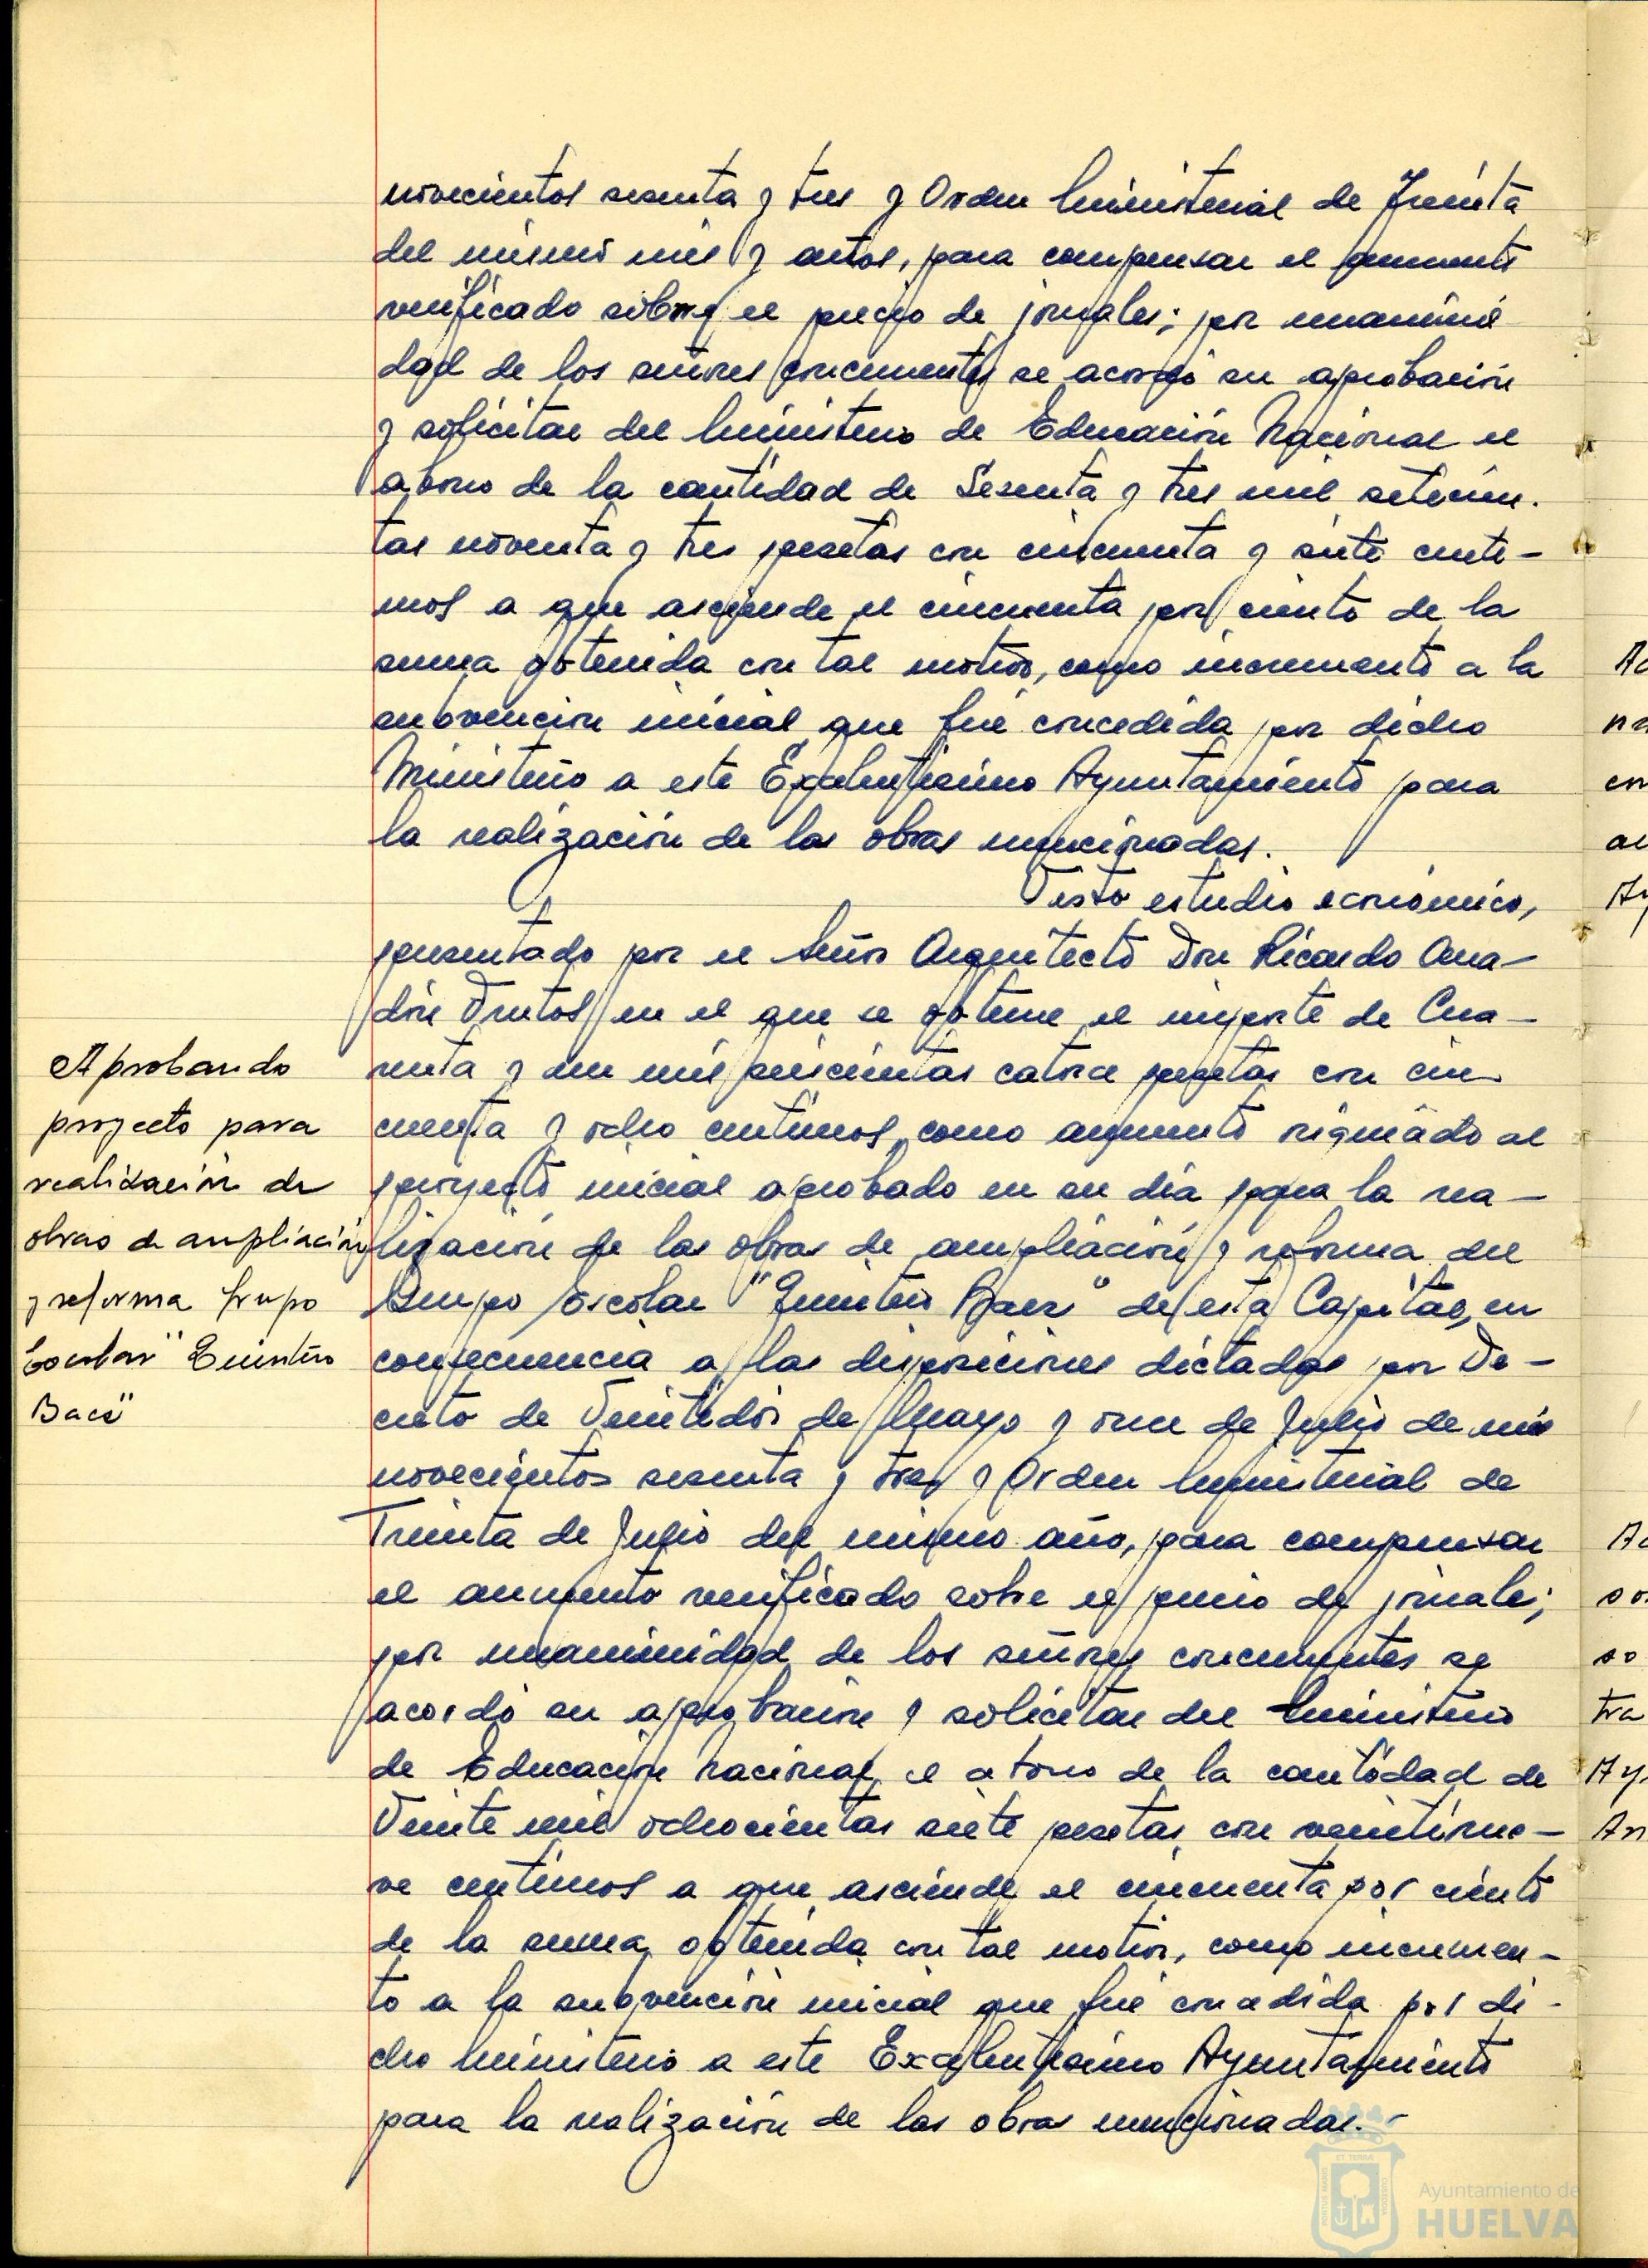 novecientos sesenta y tres y Orden Ministerial de Treinta
del mismo mes y antos, para compensar el aumento
verificado sobre el precio de jornales; por unanimi
dad de los señores concurrentes se acordó su aprobación
y solicitar del Ministerio de Educación Nacional el
abono de la cantidad de Sesenta y tres mil setecien-
tas noventa y tres pesetas con cincuenta y siete centi-
mos a que asciende el cincuenta por ciento de la
suma obtenida con tal motivo, como incremento a la
subvención inicial que fué concedida por dicho
Ministerio a este Excelentísimo Ayuntamiento para
la realización de las obras mencionadas.
Visto estudio económico,
presentado por el Señor Arquitecto Don Ricardo Ana-
dón Frutos en el que se obtiene el importe de Cua-
renta y un mil seiscientas catorce pesetas con cin
cuenta y ocho centimos, como aumento originado al
proyecto inicial aprobado en su día para la rea-
lización de las obras de ampliación y reforma del
Grupo Escolar "Quintero Baez" de esta Capital, en
consecuencia a las disposiciones dictadas por De-
creto de Veintidos de Mayo y once de Julio de mil
novecientos sesenta y tres y Orden Ministerial de
Treinta de Julio del mismo año, para compensar
el aumento verificado sobre el precio de jornales;
por unanimidad de los señores concurrentes se
acordó su aprobación y solicitar del Ministerio
de Educación Nacional el abono de la cantidad de
Veinte mil ochocientas siete pesetas con veintinue-
ve centimos a que asciende el cincuenta por ciento
de la suma obtenida con tal motivo, como incremen-
to a la subvención inicial que fué concedida por di-
cho Ministerio a este Excelentísimo Ayuntamiento
para la realización de las obras mencionadas.-
Aprobando
proyecto para
realización de
obras de ampliación
y reforma Grupo
Escolar "Quintero
Baez"
Ayuntamiento de
HUELVA